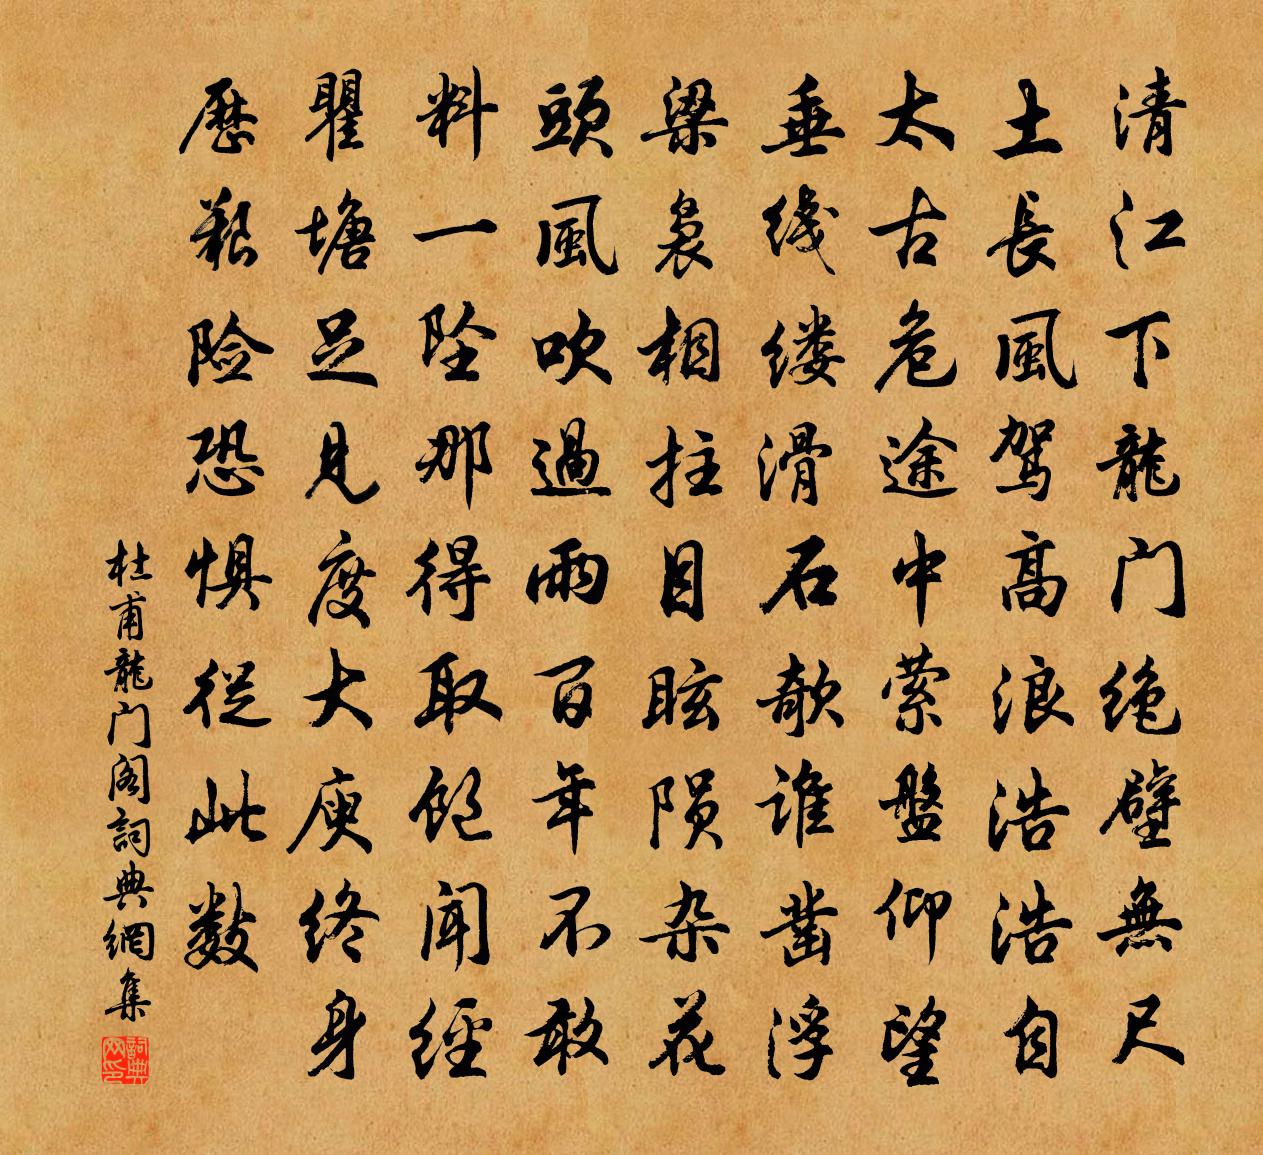 清江下龍门绝壁無尺
土長風驾高浪浩浩自
太古危途中萦盤仰望
垂线缕滑石欹谁凿浮
梁裊相拄目眩陨杂花
頭風吹過雨百年不敢
料一坠那得取飽聞經
瞿塘足見度大庾终身
歷艱险恐惧從此數
杜甫龍门阁詞典網集
詞典网印